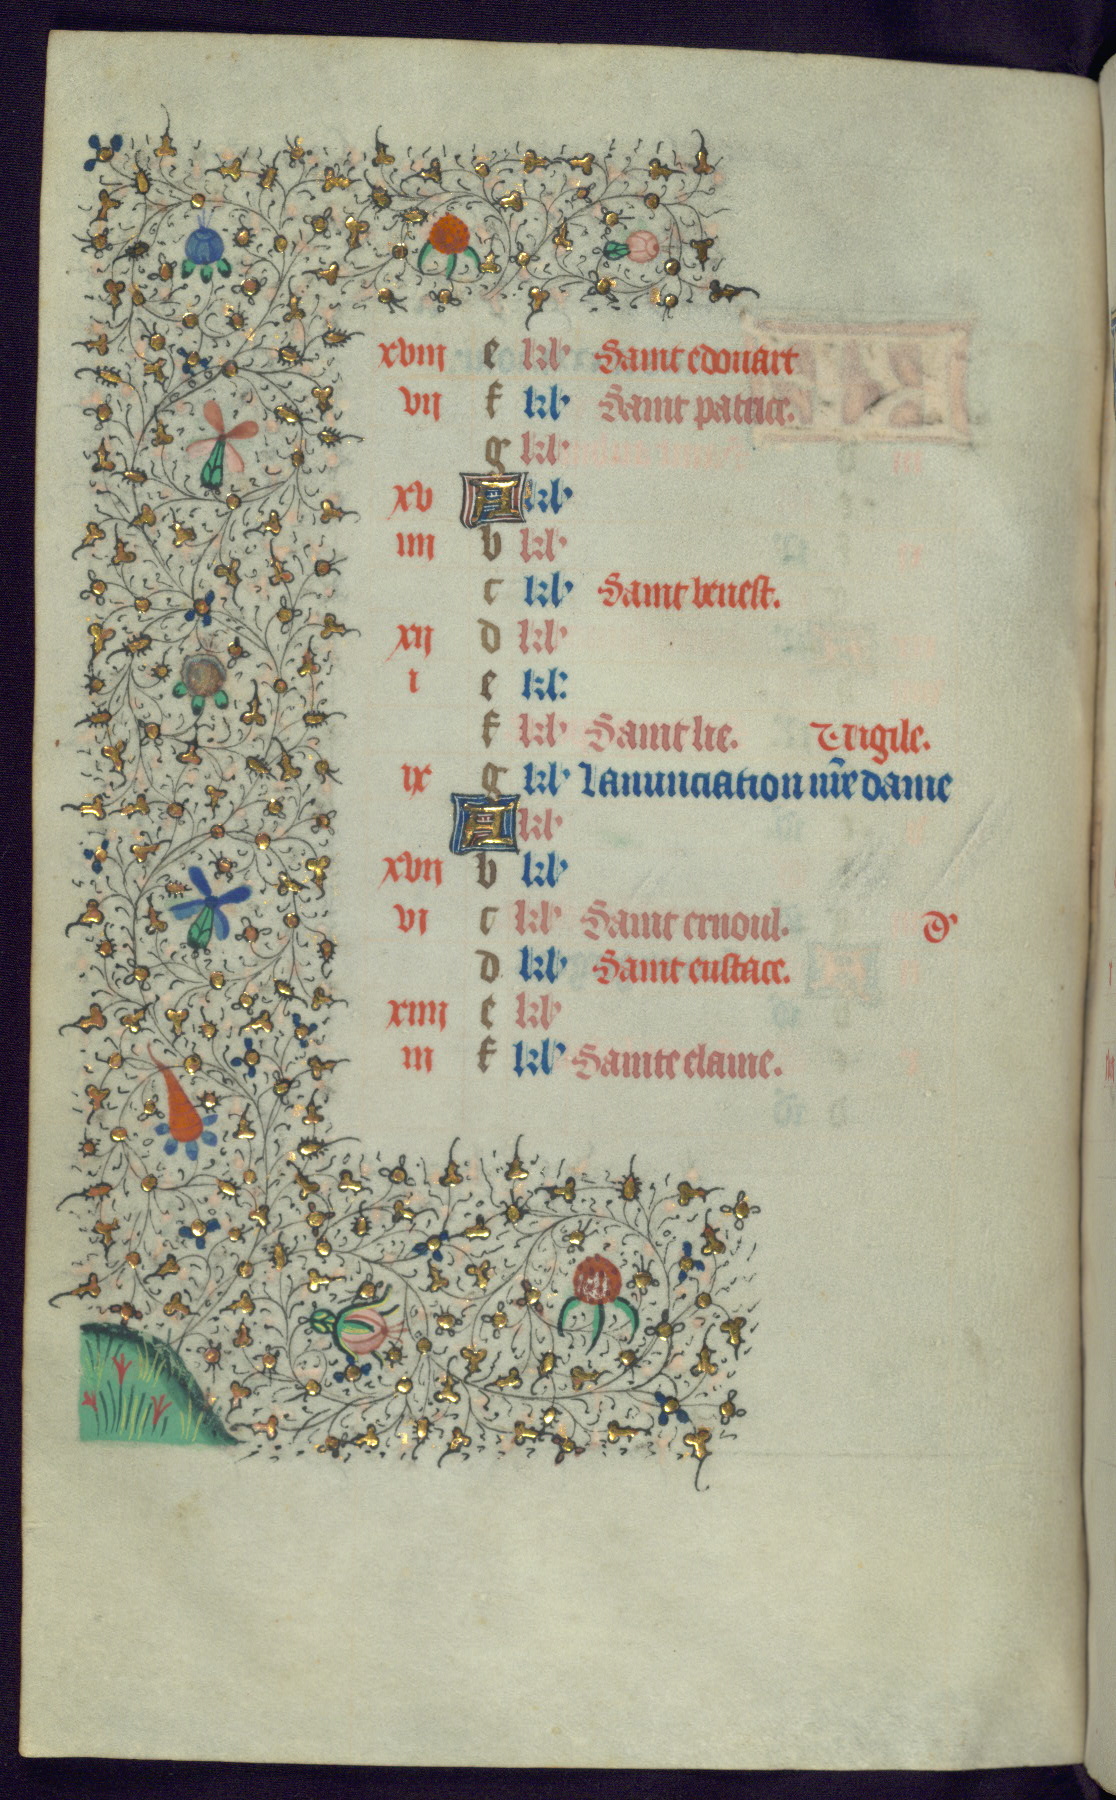 xviii e kl' Saint edouart
vii f kl' Saint patrice.
g kl'
xv A kl'
iiii b kl'
c kl' Saint benest.
xii d kl'
i e kl'
f kl' Saint lie. Vigile.
ix g kl' Lanunciation nr̄e dame
A kl'
xvii b kl'
vi c kl' Saint ernoul. D'
d kl' Saint eustace.
xiiii e kl'
iii f kl' Sainte elaine.